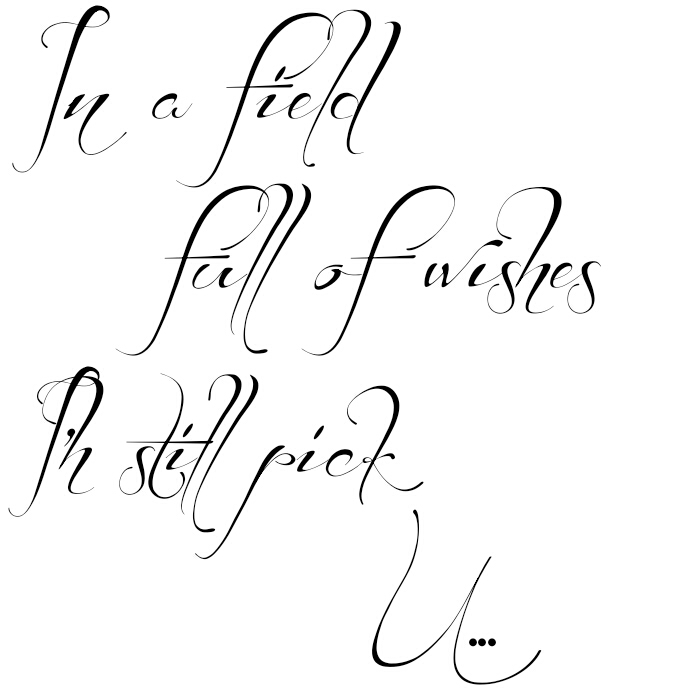 In a field
full of wishes
I'h still pick
U...